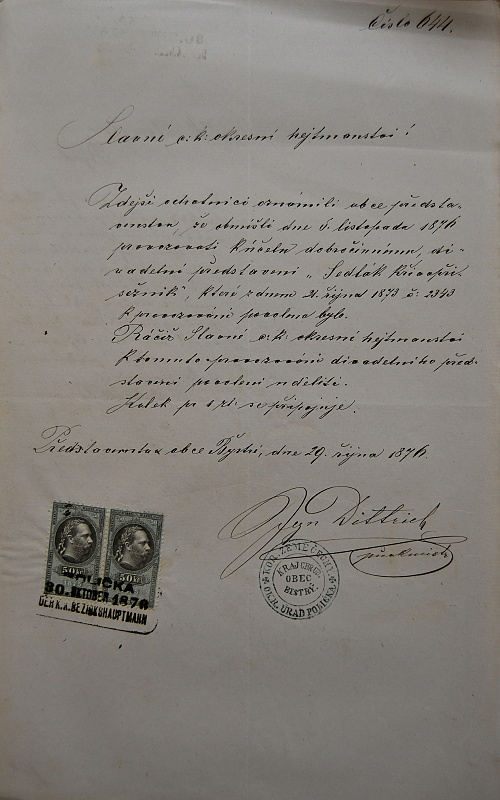 Číslo 644.
Slavné c: k: okresní hejtmanství!
Zdejší ochotníci oznámili obce předsta-
venstvu, že obmýšlí dne 5. listopadu 1876
provozovati k účelu dobročinnému, di-
vadelní představení „Sedlák křivopří-
sežník", které z dnem 21. října 1873 č: 2343
k provozování povoleno bylo.
Ráčiž Slavné c. k. okresní hejtmanství
k tomuto provozování divadelního před-
stavení povolení uděliti.
Kolek pr 1 zl. se připojuje.
Představenstvo obce Bystré, dne 29. října 1876.
Dittrich
50 kr 50 kr
POLICKA
30. OKTOBER 1876
DER K.K. BEZIRKSHAUPTMANN
KOR. ZEMĚ ČESKÁ
KRAJ CHRUD.
OBEC
BISTRÝ.
OKR. ÚŘAD POLIČKA